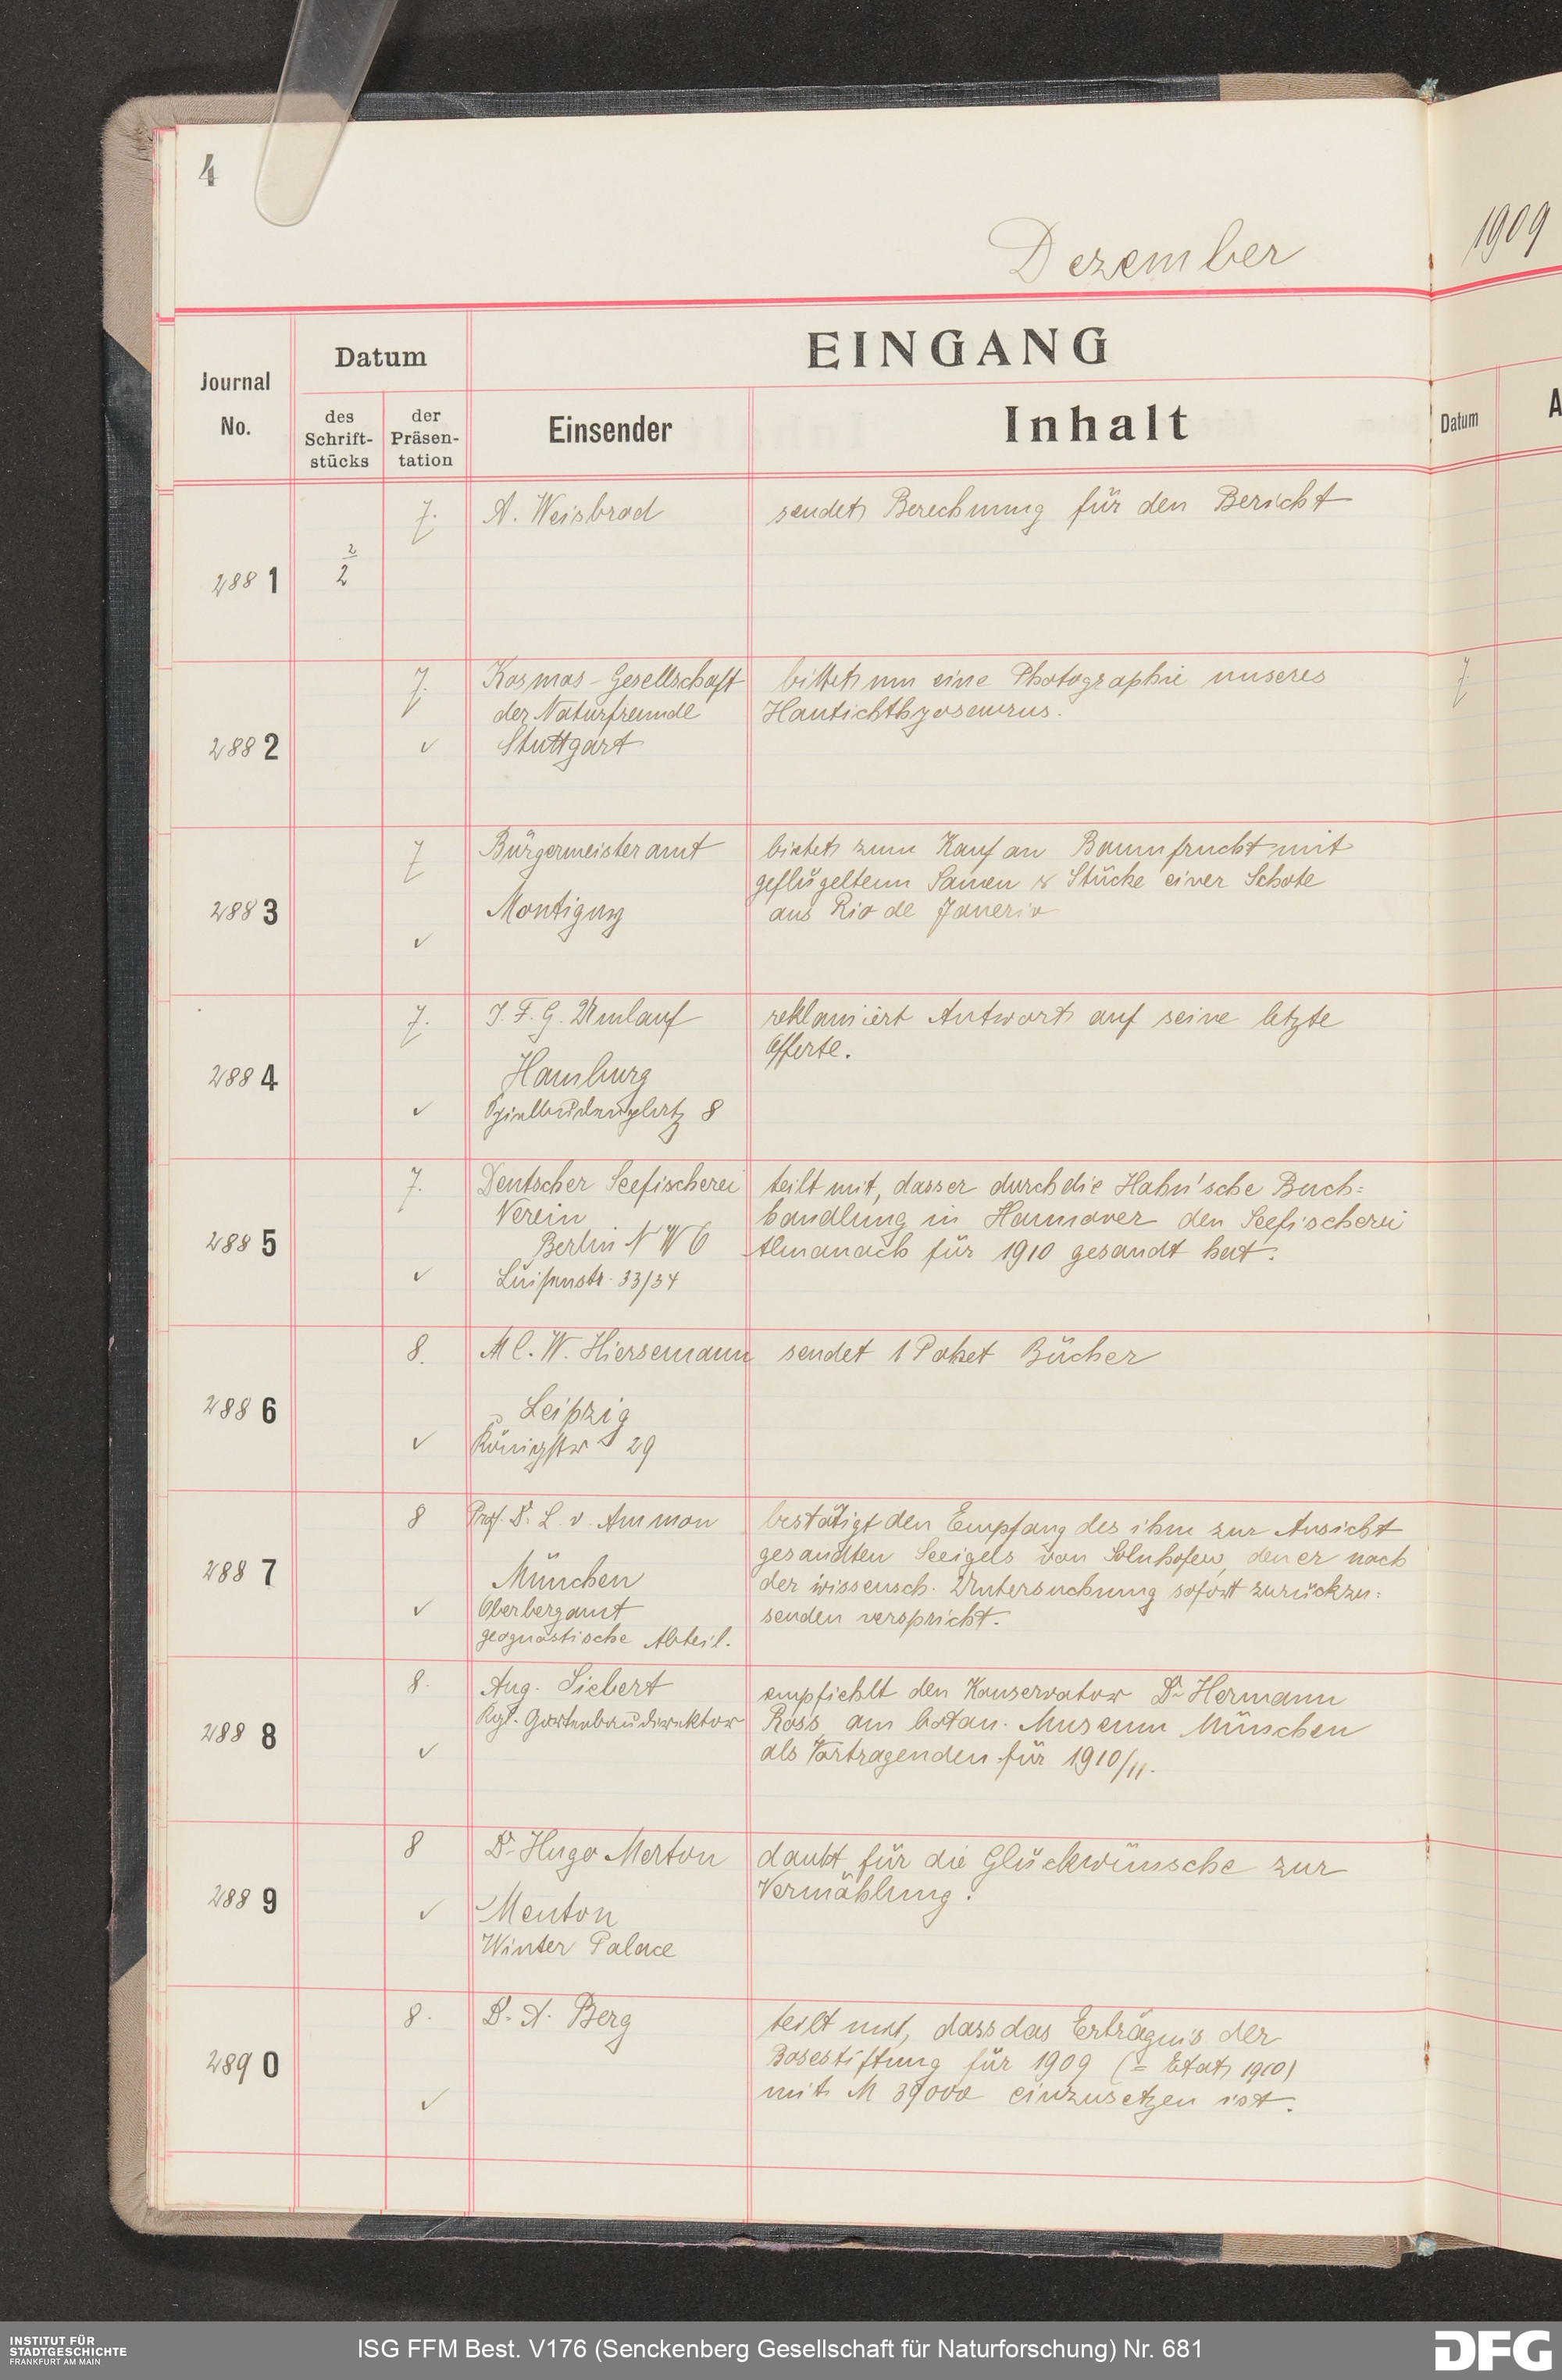 4
Dezember
1909
Journal
No.
Datum
des
Schrift-
stücks
der
Präsen-
tation
EINGANG
Einsender
Inhalt
Datum
A
2881
2
2
7.
A. Weisbrod
sendet Berechnung für den Bericht
2882
7.
✓
Kosmos-Gesellschaft
der Naturfreunde
Stuttgart
bittet um eine Photographie unseres
Hautichthyosaurus.
7.
2883
7
✓
Bürgermeisteramt
Montigny
bietet zum Kauf an Baumfrucht mit
geflügeltem Samen & Stücke einer Schote
aus Rio de Janerio
2884
7.
✓
J. F. G. Umlauf
Hamburg
Spielbudenplatz 8
reklamiert Antwort auf seine letzte
Offerte.
2885
7.
✓
Deutscher Seefischerei
Verein
Berlin N W 6
Luisenstr. 33/34
teilt mit, dass er durch die Hahn'sche Buch=
handlung in Hannover den Seefischerei
Almanach für 1910 gesandt hat.
2886
8.
✓
W. Hiersemann
Leipzig
Königstr 29
sendet 1 Paket Bücher
2887
8
✓
Prof. Dr. L. v. Ammon
München
Oberbergamt
geognostische Abteil.
bestätigt den Empfang des ihm zur Ansicht
gesandten Seeigels von Solnhofen, den er nach
der wissensch. Untersuchung sofort zurückzu=
senden verspricht.
2888
8.
✓
Aug. Siebert
Kgl. Gartenbaudirektor
empfiehlt den Konservator Dr Hermann
Ross, am botan. Museum München
als Vortragenden für 1910/11.
2889
8
✓
Dr. Hugo Merton
Menton
Winter Palace
dankt für die Glückwünsche zur
Vermählung.
2890
8.
✓
Dr. A. Berg
teilt mit, dass das Erträgnis der
Bosestiftung für 1909 (= Etat 1910)
mit M 39000 einzusetzen ist.
INSTITUT FÜR
STADTGESCHICHTE
FRANKFURT AM MAIN
ISG FFM Best. V176 (Senckenberg Gesellschaft für Naturforschung) Nr. 681
DFG